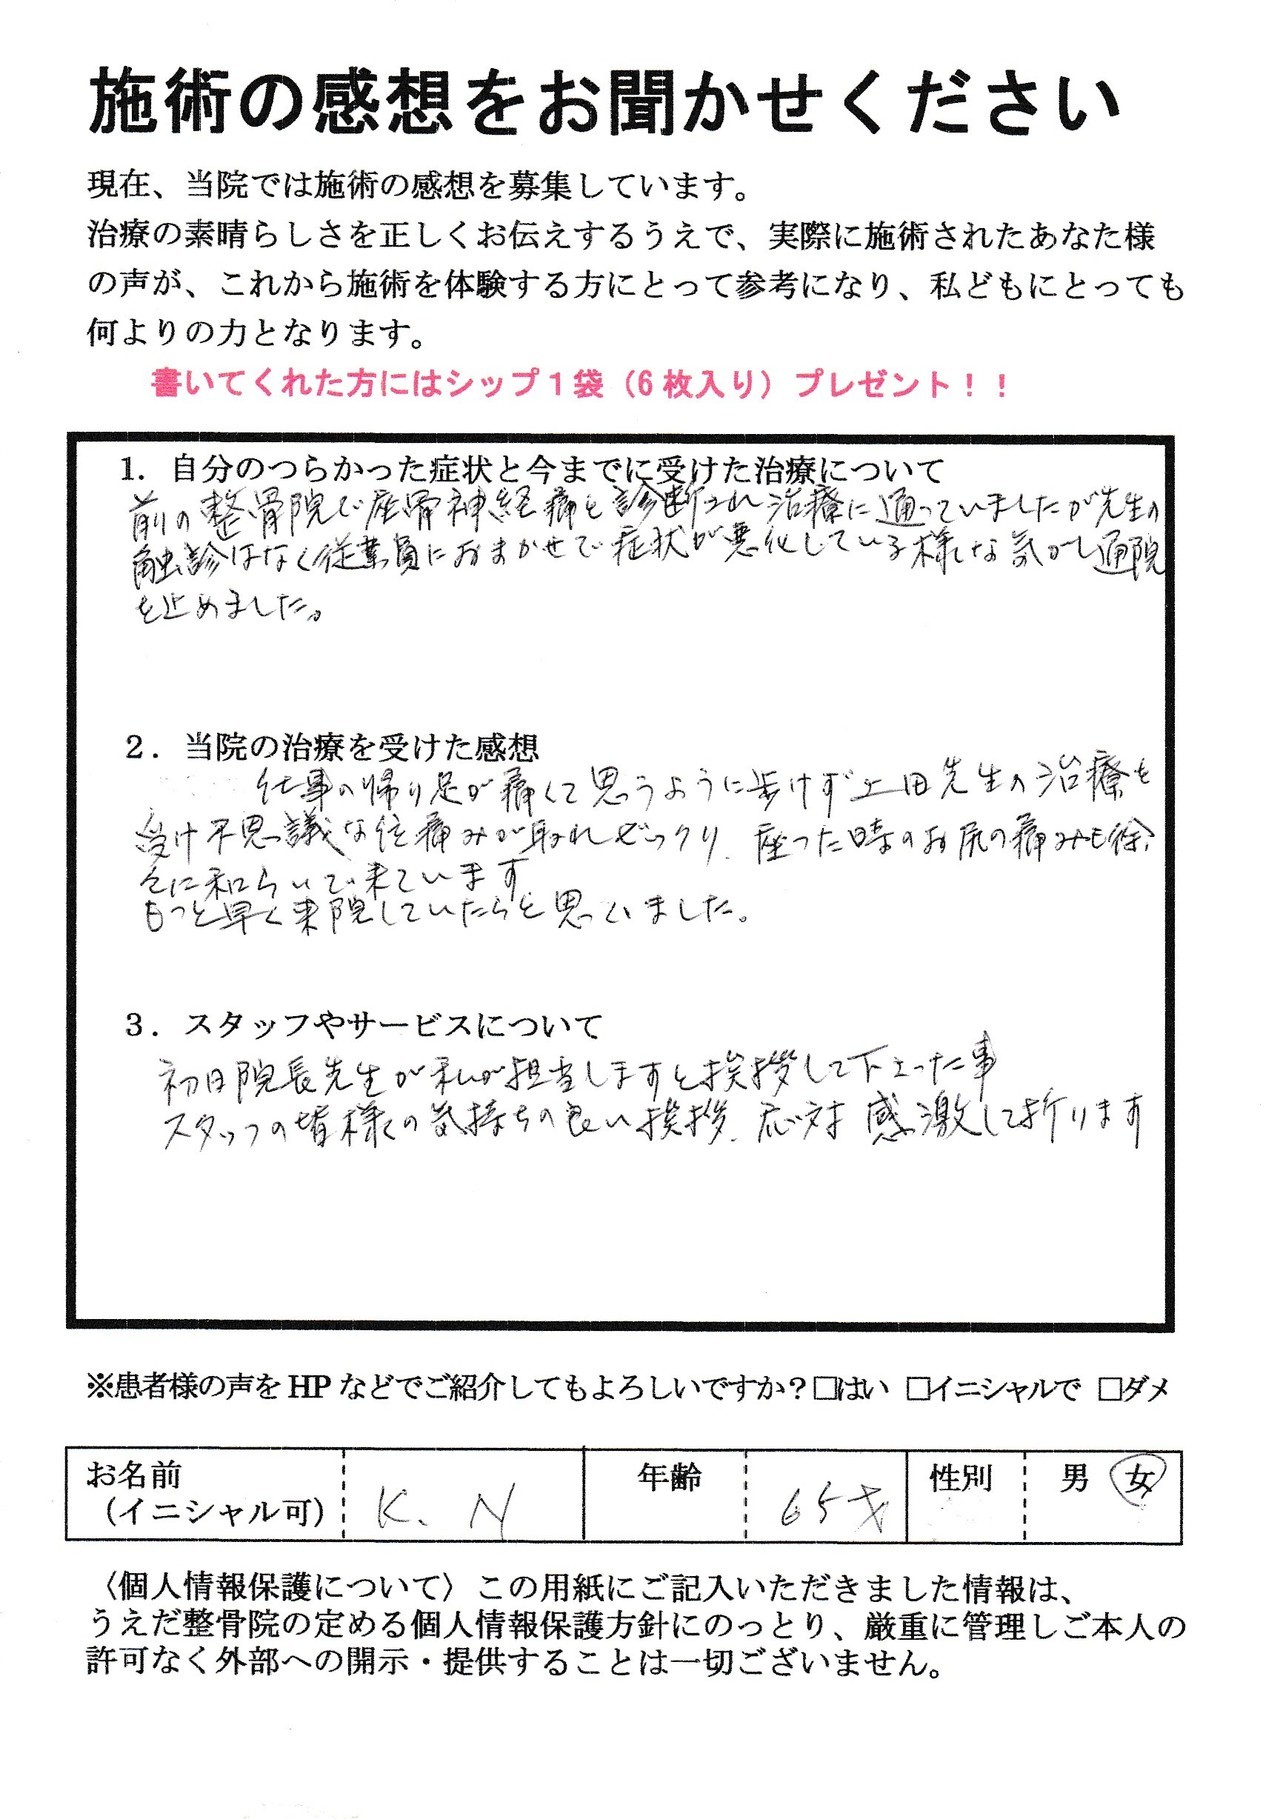 施術の感想をお聞かせください
現在、当院では施術の感想を募集しています。
治療の素晴らしさを正しくお伝えするうえで、実際に施術されたあなた様
の声が、これから施術を体験する方にとって参考になり、私どもにとっても
何よりの力となります。
書いてくれた方にはシップ1袋（6枚入り）プレゼント！！
1. 自分のつらかった症状と今までに受けた治療について
前の整骨院で座骨神経痛と診断され治療に通っていましたが先生の
触診はなく従業員におまかせで症状が悪化している様な気がし通院
を止めました。
2. 当院の治療を受けた感想
仕事の帰り足が痛くて思うように歩けず上田先生の治療を
受け不思議な位痛みが取れびっくり、座った時のお尻の痛みも徐々
に和らいで来ています
もっと早く来院していたらと思いました。
3. スタッフやサービスについて
初日院長先生が私が担当しますと挨拶して下さった事
スタッフの皆様の気持ちの良い挨拶、応対 感激して折ります
※患者様の声をHPなどでご紹介してもよろしいですか？□はい □イニシャルで □ダメ
お名前
（イニシャル可） K. N 年齢 65才 性別 男 女
〈個人情報保護について〉この用紙にご記入いただきました情報は、
うえだ整骨院の定める個人情報保護方針にのっとり、厳重に管理しご本人の
許可なく外部への開示・提供することは一切ございません。